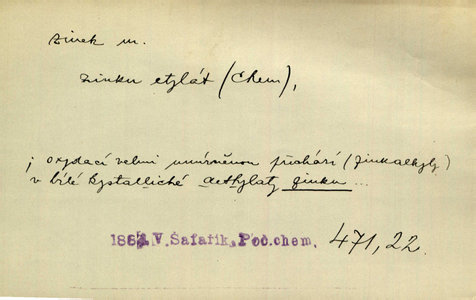 zinek m.
zinku etylát (Chem),
; oxydací velmi umírněnou přichází (zinkalkyly)
v bílé krystallické aethylaty zinku ...
186 V. Šafařík, Poč.chem. 471, 22.